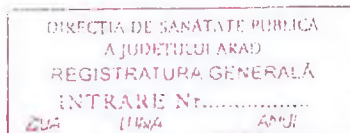 DIRECTIA DE SANATATE PUBLICA
A JUDETULUI ARAD
REGISTRATURA GENERALĂ
INTRARE Nr................
ZIUA LUNA ANUL